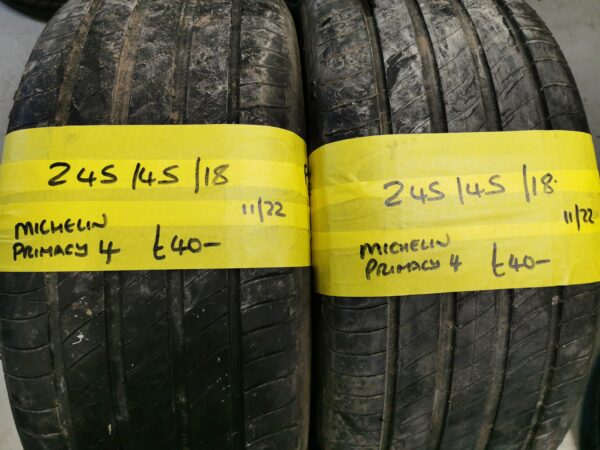 245/45/18
11/22
MICHELIN
PRIMACY 4 £40-
245/45/18
11/22
MICHELIN
PRIMACY 4 £40-